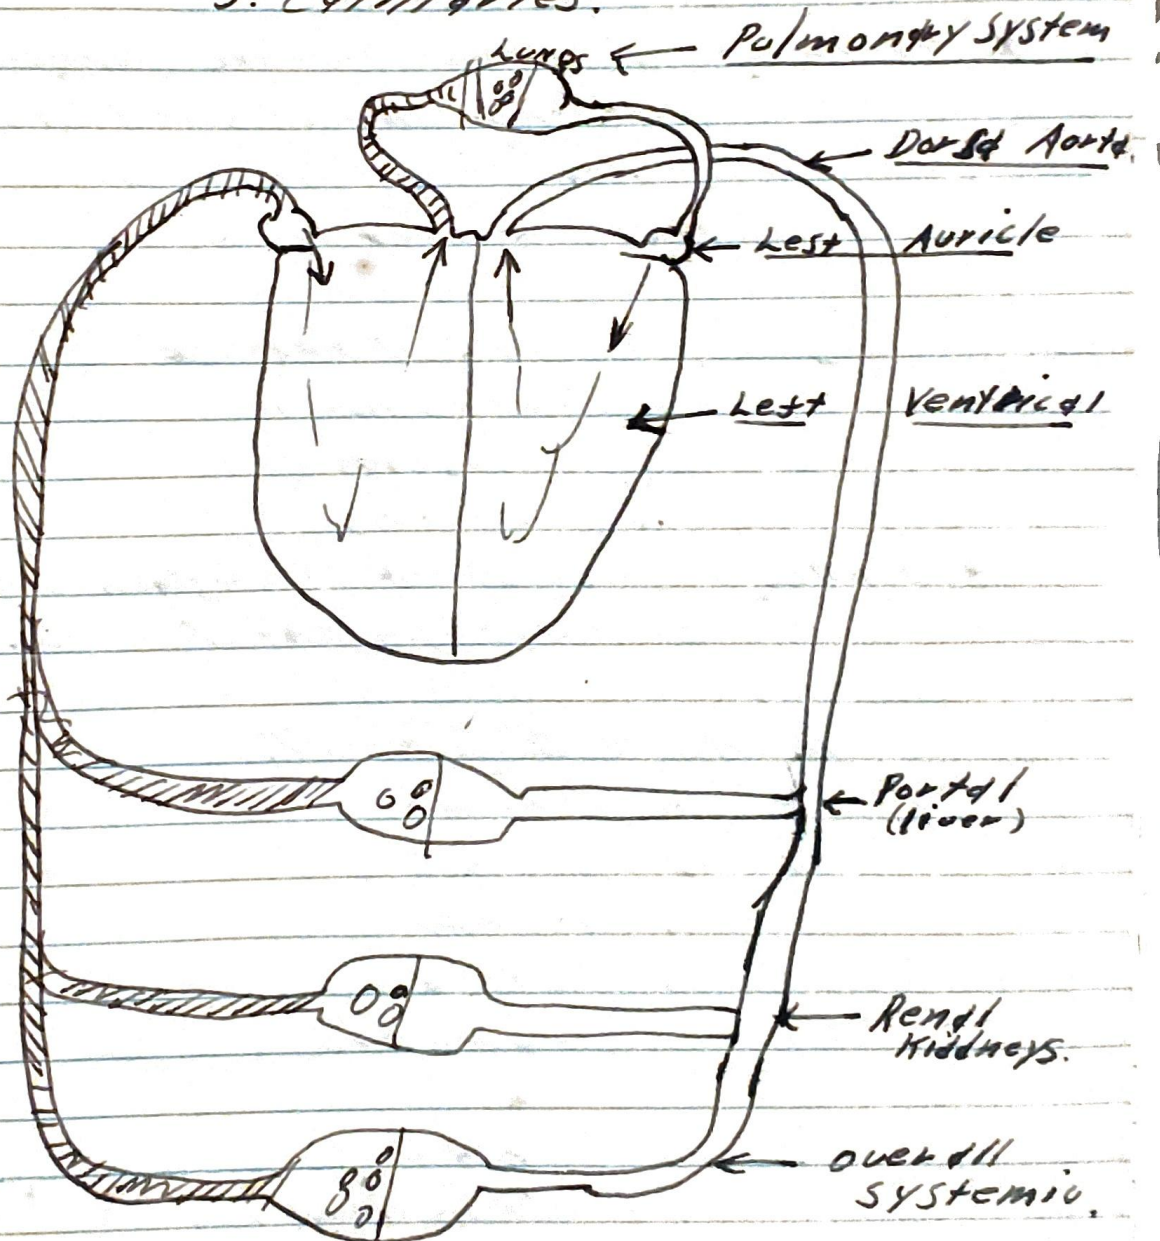 3. Capillaries.
Lungs ← Pulmondry System
Dorsal Aorta.
Left Auricle
Left Ventrical
Portal
(liver)
Rendl
Kiddneys.
overall
systemic.